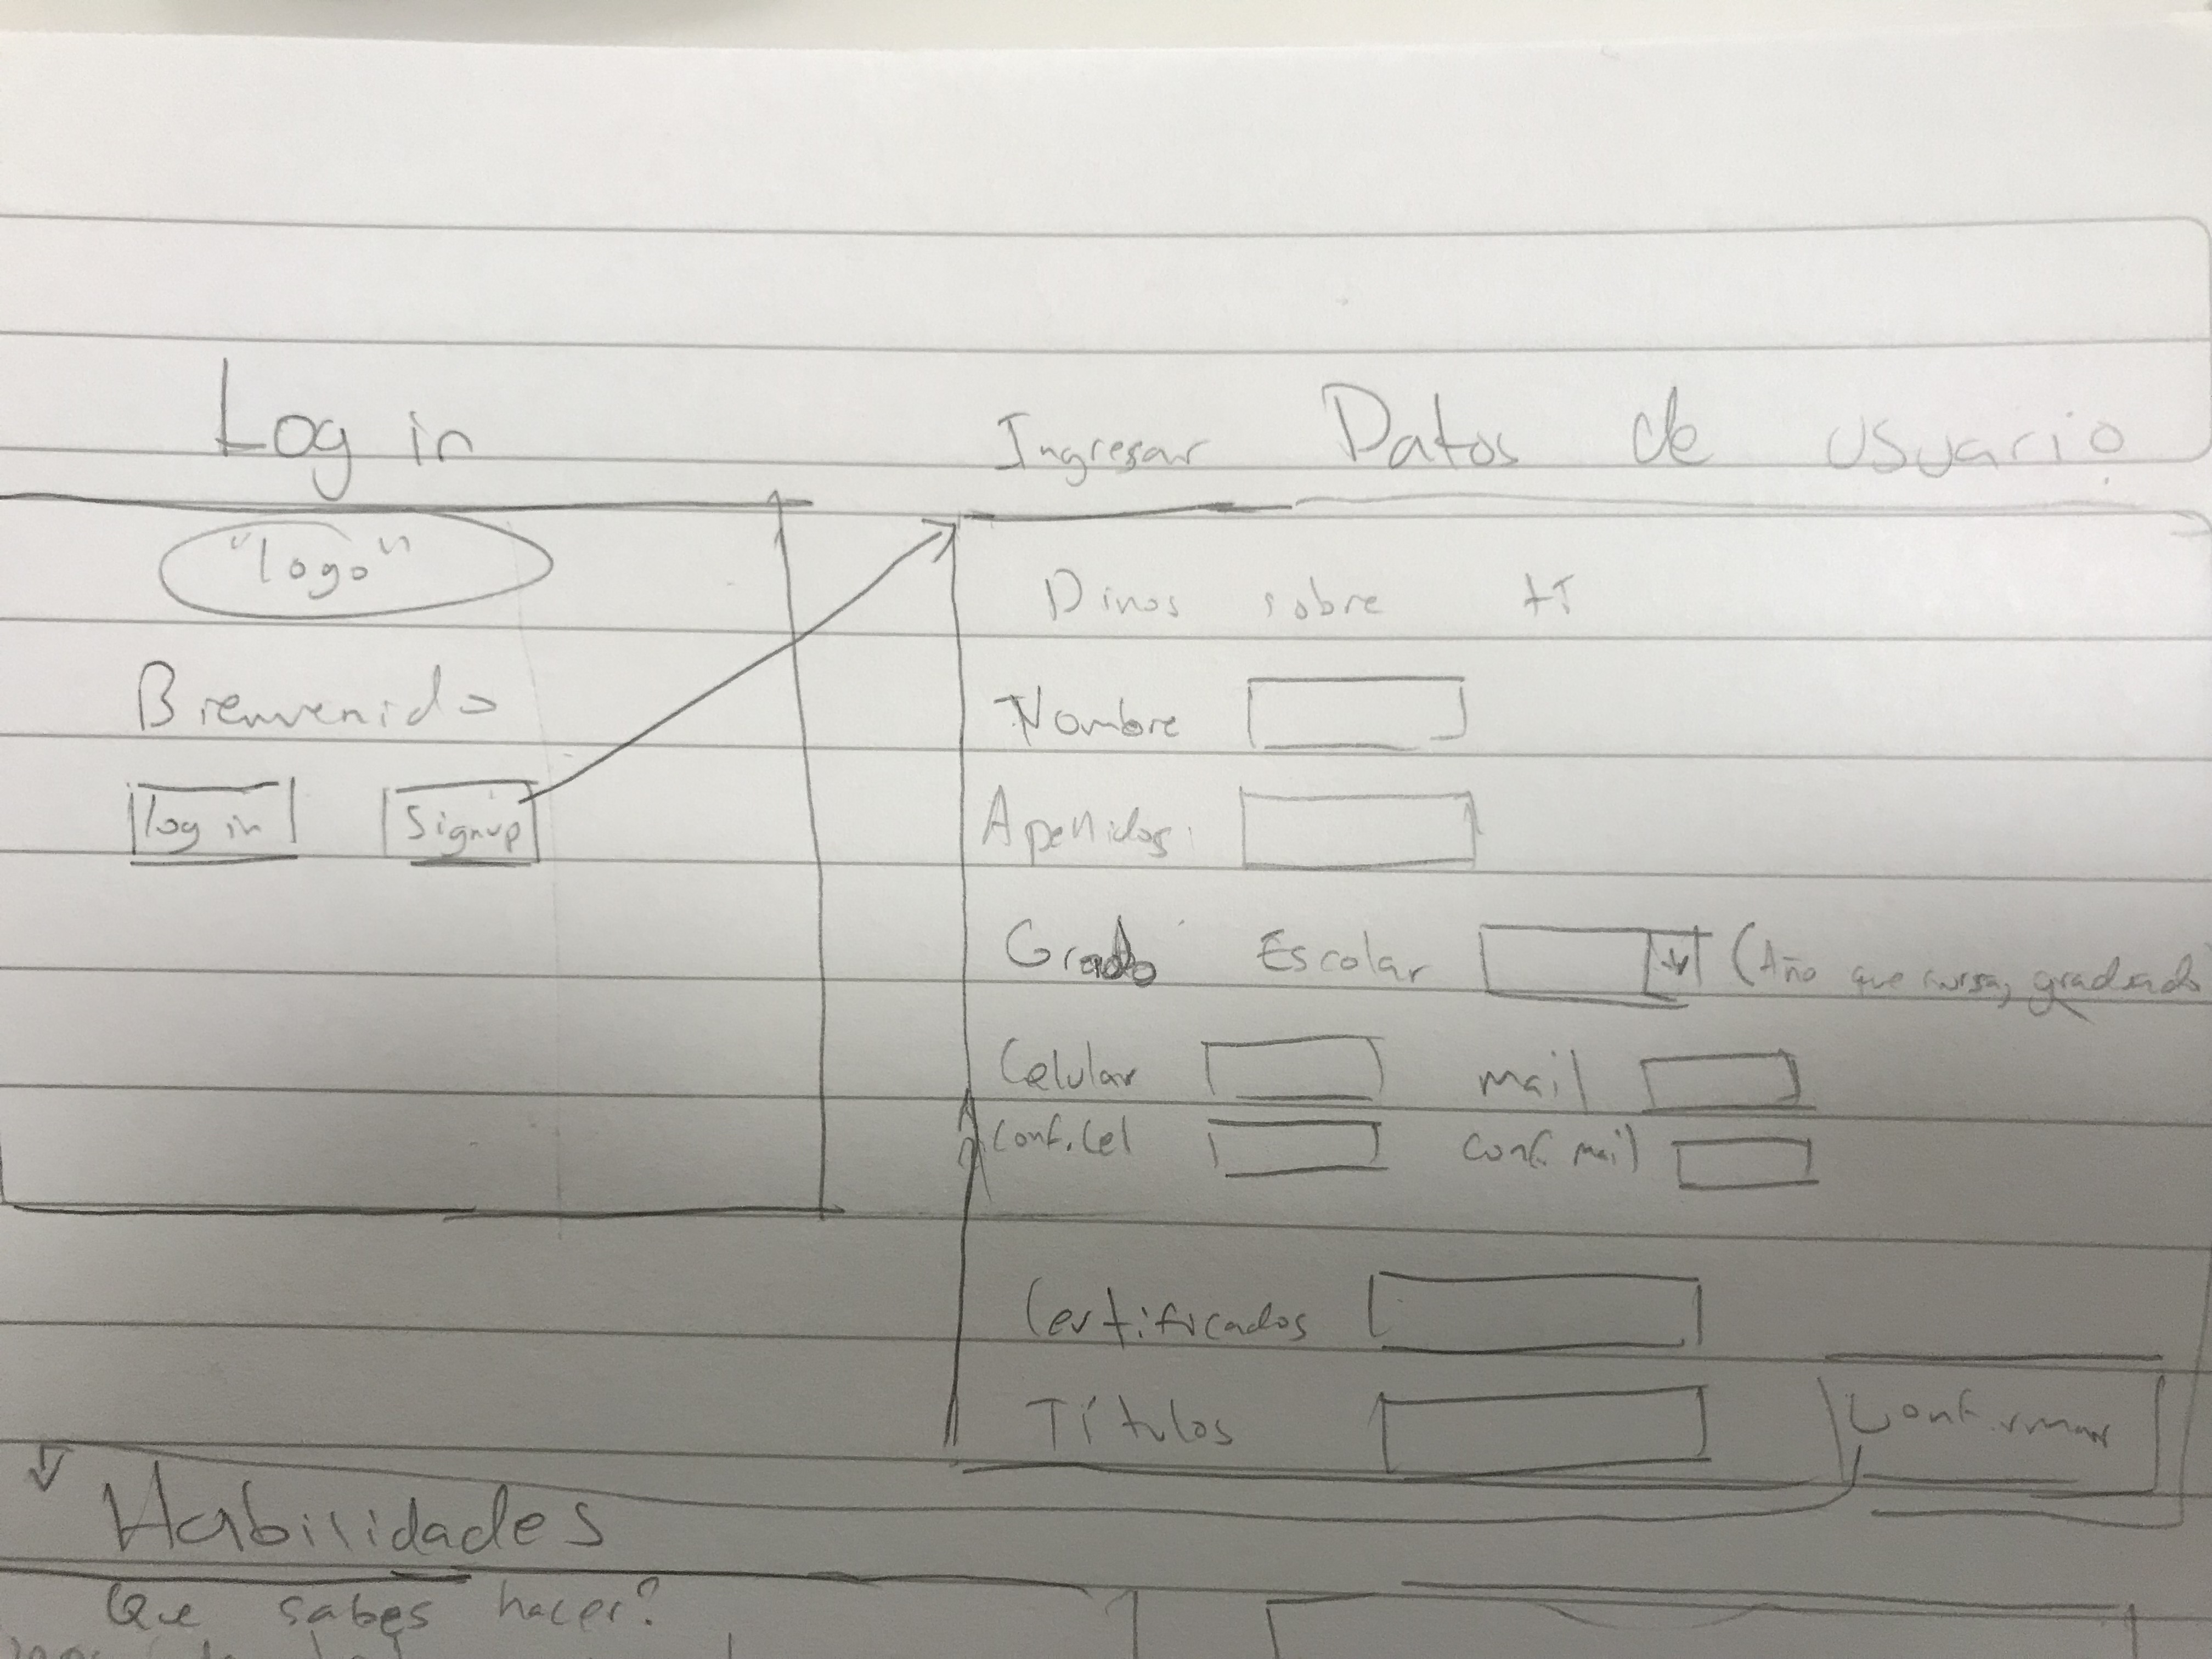 Log in
"logo"
Bienvenido
log in Signup
Ingresar Datos de usuario
Dinos sobre ti
Nombre
Apellidos:
Grado Escolar (Año que cursa, graduado
Celular mail
Conf. Cel conf. mail
Certificados
Títulos Confirmar
Habilidades
Que sabes hacer?